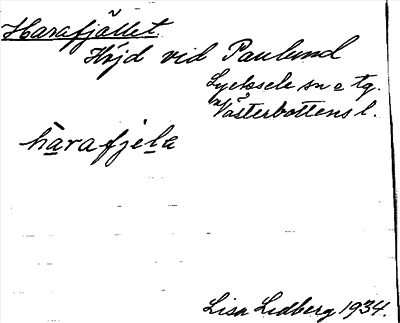 Harafjället.
Höjd vid Paulund
Lycksele sn o tg.
Västerbottens l.
harafjela
Lisa Lidberg 1934.